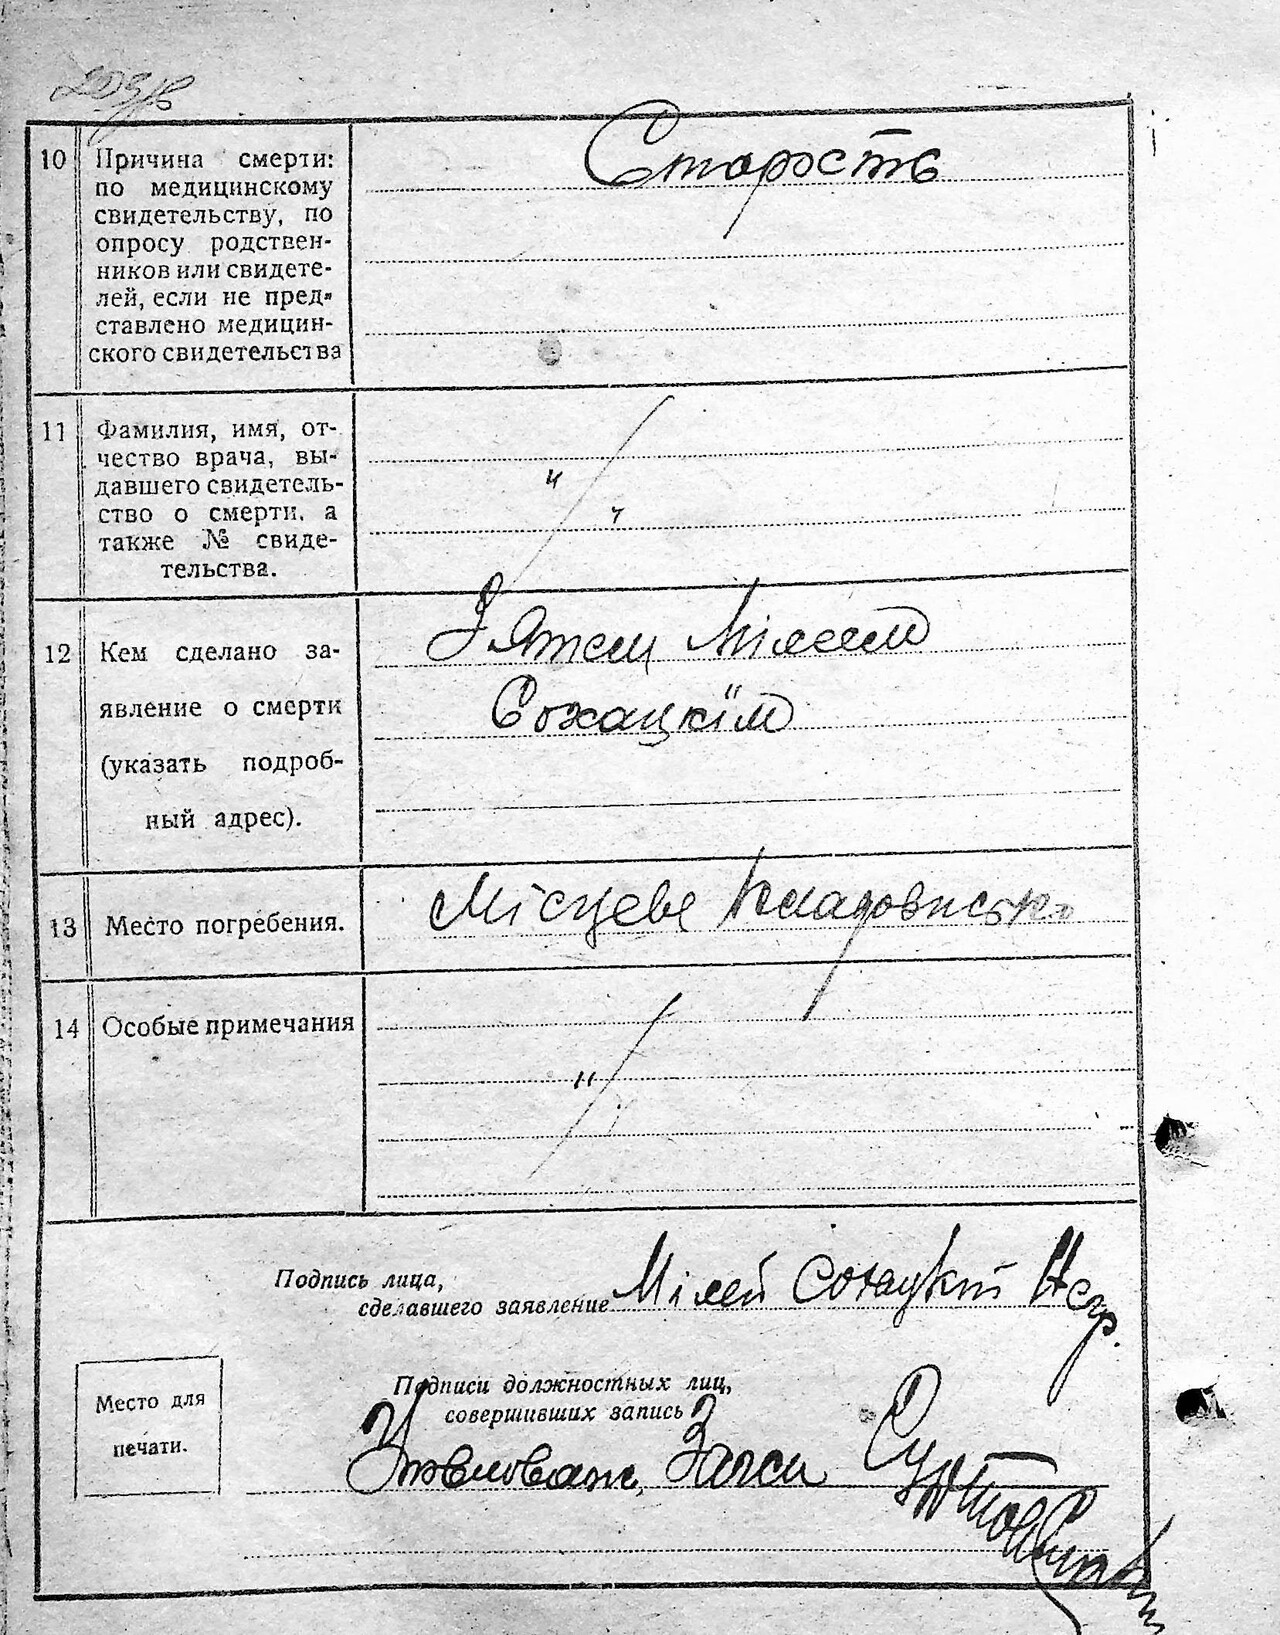 10 Причина смерти:
по медицинскому
свидетельству, по
опросу родствен-
ников или свидете-
лей, если не пред-
ставлено медицин-
ского свидетельства
Старость
11 Фамилия, имя, от-
чество врача, вы-
давшего свидетель-
ство о смерти, а
также № свиде-
тельства.
12 Кем сделано за-
явление о смерти
(указать подроб-
ный адрес).
Зятем Мілєем
Сохацкїм
13 Место погребения.
Місцеве Кладовисько
14 Особые примечания
"
Подпись лица,
сделавшего заявление Мілей Сохацкій
Подписи должностных лиц,
совершивших запись
Загси
Место для
печати.